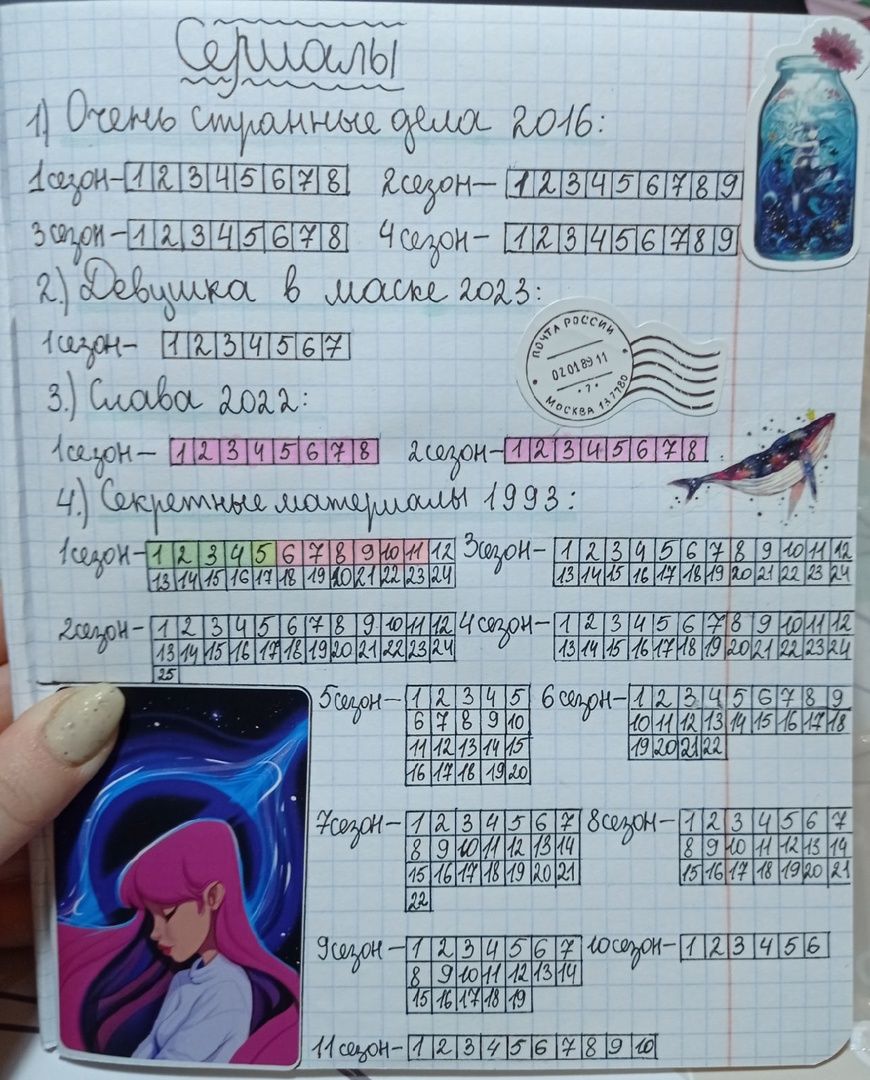 Сериалы
1) Очень странные дела 2016:
1 сезон- 1 2 3 4 5 6 7 8 2 сезон- 1 2 3 4 5 6 7 8 9
3 сезон- 1 2 3 4 5 6 7 8 4 сезон- 1 2 3 4 5 6 7 8 9
2.) Девушка в маске 2023:
1 сезон- 1 2 3 4 5 6 7
ПОЧТА РОССИИ
02.01.89 11
· 7 ·
МОСКВА 137780
3.) Слава 2022:
1 сезон- 1 2 3 4 5 6 7 8 2 сезон- 1 2 3 4 5 6 7 8
4.) Секретные материалы 1993:
1 сезон- 1 2 3 4 5 6 7 8 9 10 11 12 3 сезон- 1 2 3 4 5 6 7 8 9 10 11 12
13 14 15 16 17 18 19 20 21 22 23 24 13 14 15 16 17 18 19 20 21 22 23 24
2 сезон- 1 2 3 4 5 6 7 8 9 10 11 12 4 сезон- 1 2 3 4 5 6 7 8 9 10 11 12
13 14 15 16 17 18 19 20 21 22 23 24 13 14 15 16 17 18 19 20 21 22 23 24
25
5 сезон- 1 2 3 4 5 6 сезон- 1 2 3 4 5 6 7 8 9
6 7 8 9 10 10 11 12 13 14 15 16 17 18
11 12 13 14 15 19 20 21 22
16 17 18 19 20
7 сезон- 1 2 3 4 5 6 7 8 сезон- 1 2 3 4 5 6 7
8 9 10 11 12 13 14 8 9 10 11 12 13 14
15 16 17 18 19 20 21 15 16 17 18 19 20 21
22
9 сезон- 1 2 3 4 5 6 7 10 сезон- 1 2 3 4 5 6
8 9 10 11 12 13 14
15 16 17 18 19
11 сезон- 1 2 3 4 5 6 7 8 9 10